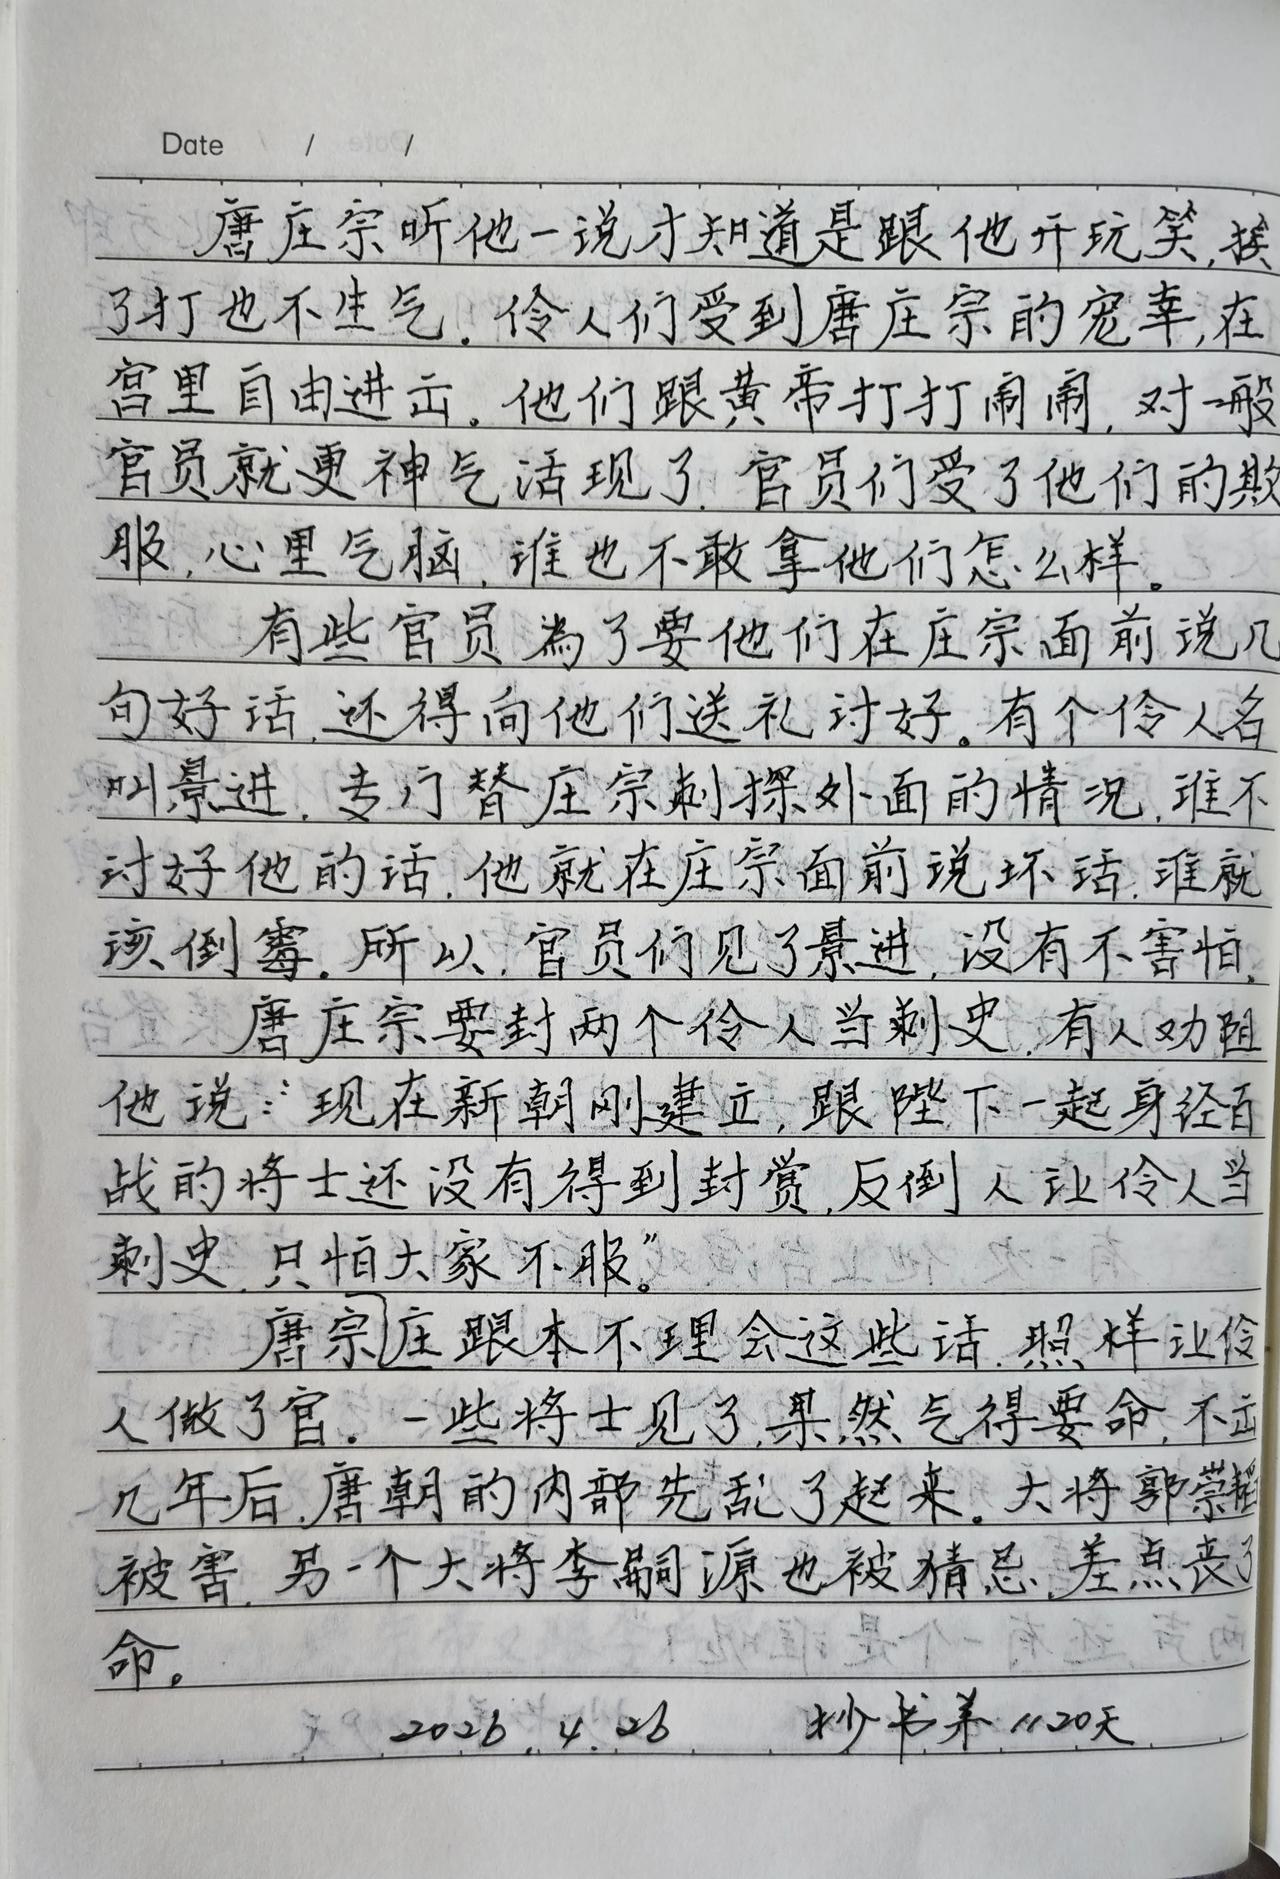 Date / /
唐庄宗听他一说才知道是跟他开玩笑,挨
了打也不生气。伶人们受到唐庄宗的宠幸,在
宫里自由进出。他们跟黄帝打打闹闹,对一般
官员就更神气活现了.官员们受了他们的欺
服,心里气脑,谁也不敢拿他们怎么样。
有些官员為了要他们在庄宗面前说几
句好话,还得向他们送礼讨好。有个伶人名
叫景进,专门替庄宗刺探外面的情况,谁不
讨好他的话,他就在庄宗面前说坏话,谁就
该倒霉。所以,官员们见了景进,没有不害怕.
唐庄宗要封两个伶人当刺史,有人劝阻
他说:“现在新朝刚建立,跟陛下一起身经百
战的将士还没有得到封赏,反倒人让伶人当
刺史,只怕大家不服。”
唐宗庄跟本不理会这些话,照样让伶
人做了官。一些将士见了,果然气得要命,不出
几年后,唐朝的内部先乱了起来。大将郭崇韬
被害,另一个大将李嗣源也被猜忌,差点丧了
命。
2026.4.26 抄书第1120天